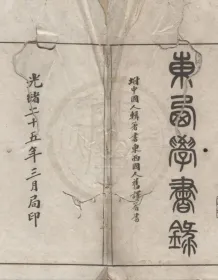 東西學書錄
坿中國人輯著書東西國人舊譯著書
光緒二十五年三月局印